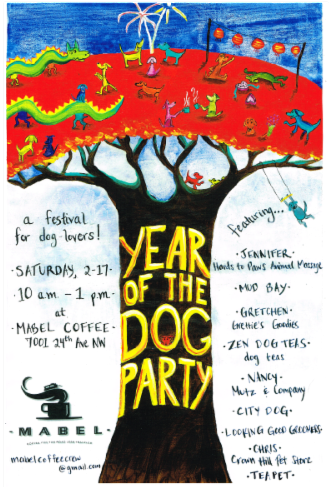 a festival
for dog lovers!
• SATURDAY, 2-17 •
• 10 am - 1 p.m. •
at
• MABEL COFFEE •
7001 24th Ave NW
MABEL
mabelcoffeecrew
@gmail.com
YEAR
OF THE
DOG
PARTY
featuring...
• JENNIFER •
Hands to Paws Animal Massage
• MUD BAY •
• GRETCHEN •
Grettie's Goodies
• ZEN DOG TEAS •
dog teas
• NANCY •
Mutz & Company
• CITY DOG •
• LOOKING GOOD GROOMERS •
• CHRIS •
Crown Hill Pet Store
• TEAPET •